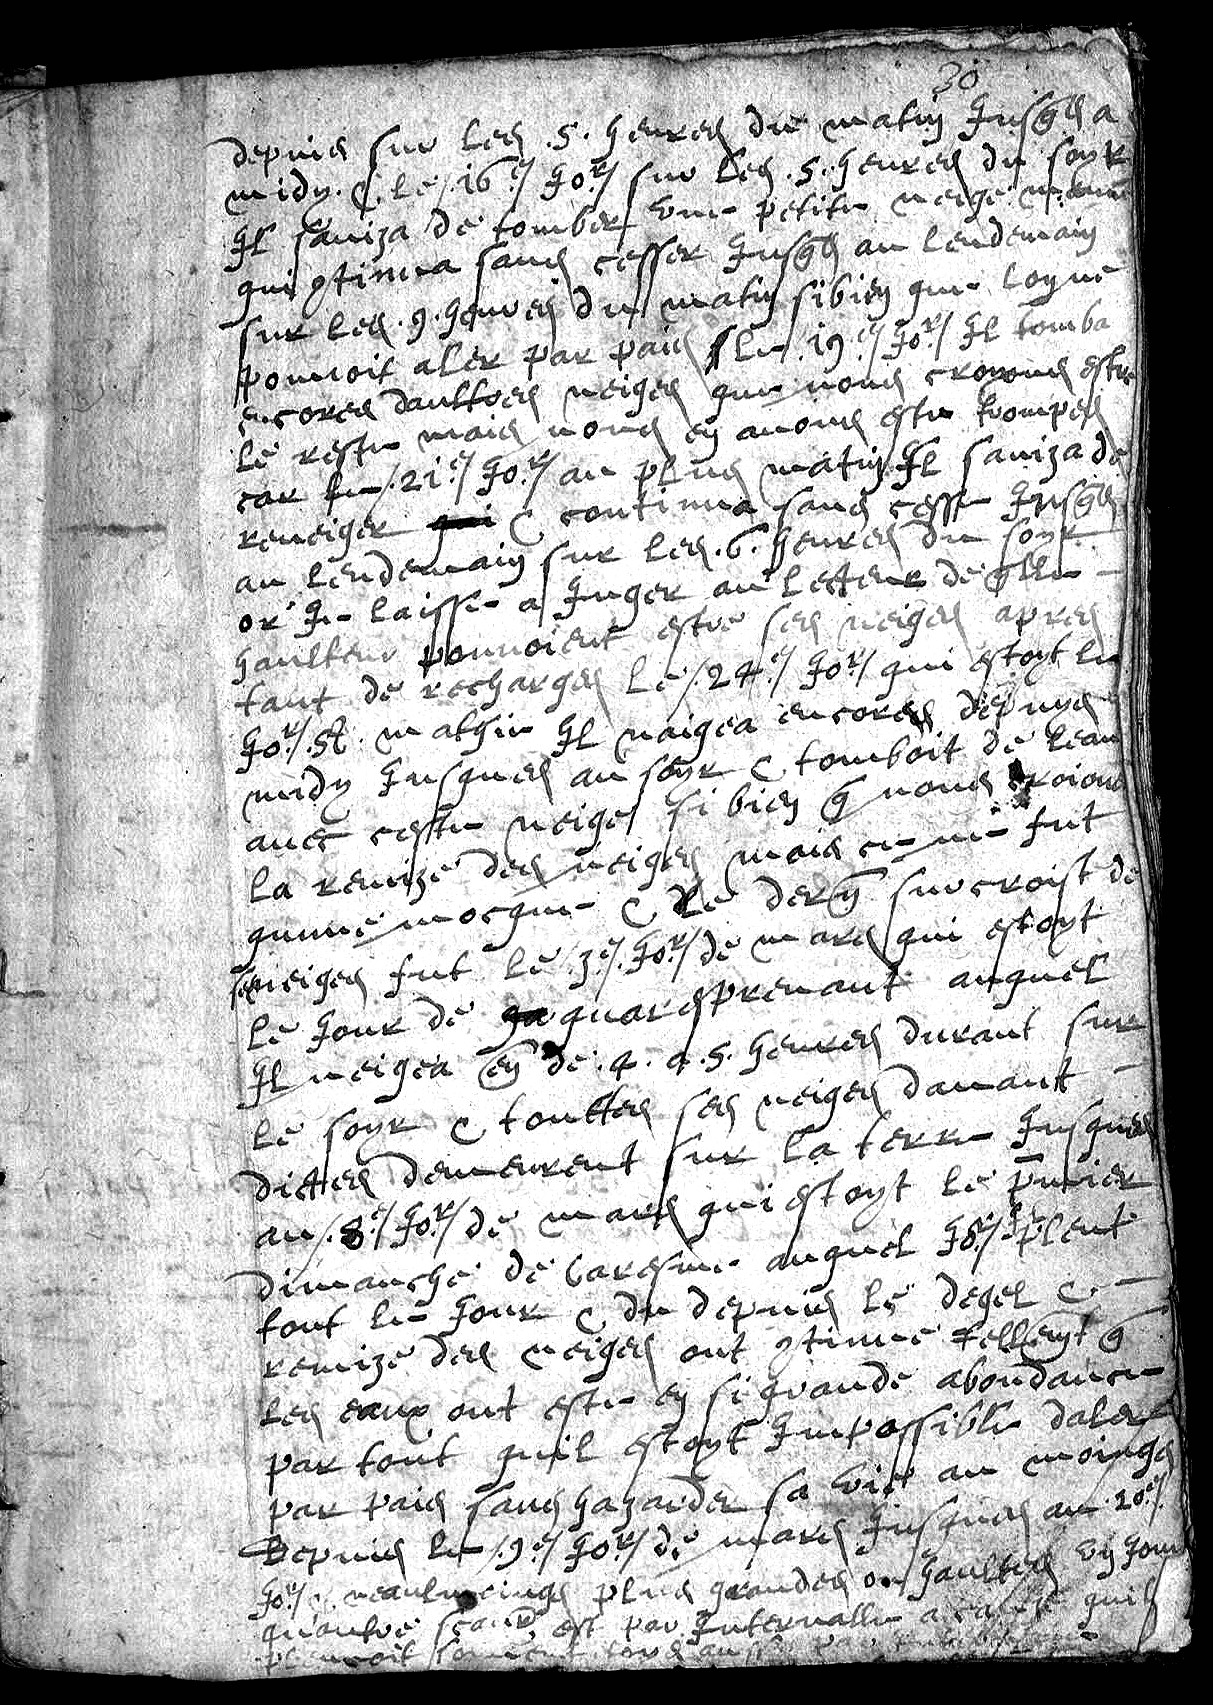 30
depuis sur les .5. heures du matin jusqs a
midy. & le .16.e jor. sur les .5. heures du soyr
Il saviza de tomber une petite neige menue
qui 9tinua sans cesser jusqs au lendemain
sur les .9. heures du matin sibien que loyne
pouvoit aler par pais / le .19.e jor. Il tomba
encores daultres neiges que nous croyons estre
le reste mais nous en avons este trompes
car le .21.e jor. au plus matin Il saviza de
reneiger & continua sans cesse jusqs
au lendemain sur les .6. heures du soyr.
or Je laisse a Juger au letteur de qlle
haulteur pouvoient estre ses neiges apres
tant de recharges le .24.e jor. qui estoyt le
jor. St. mathie Il naigea encores depuys
midy jusques au soyr & tomboit de leau
avec ceste neige si bien q nous croions
la remize des neiges mais ce ne fut
qunne mocque & Le dern surcroist de
neiges fut le .3.e jor. de mars qui estoyt
le jour de quaresprenant auquel
Il neigea en de .4. a .5. heures durant sur
le soyr & touttes ses neiges davant
dittes demeurent sur la terre jusques
au .8.e jor. de mars qui estoyt le pmier
dimanche de caresme auquel jor. pleut
tout le jour & du depuis le degel &
remize des neiges ont 9tinue tellemt q
les eaux ont este en si grande abondance
par tout quil estoyt Impossible daler
par pais sans hazarder sa vie au moings
Depuis le .9.e jor. de mars jusques au .20.e
jor. neaulmoings plus grandes ou haultes un jour
quautre scavr est par Intervalle a cause quil
pleuvoit souvent